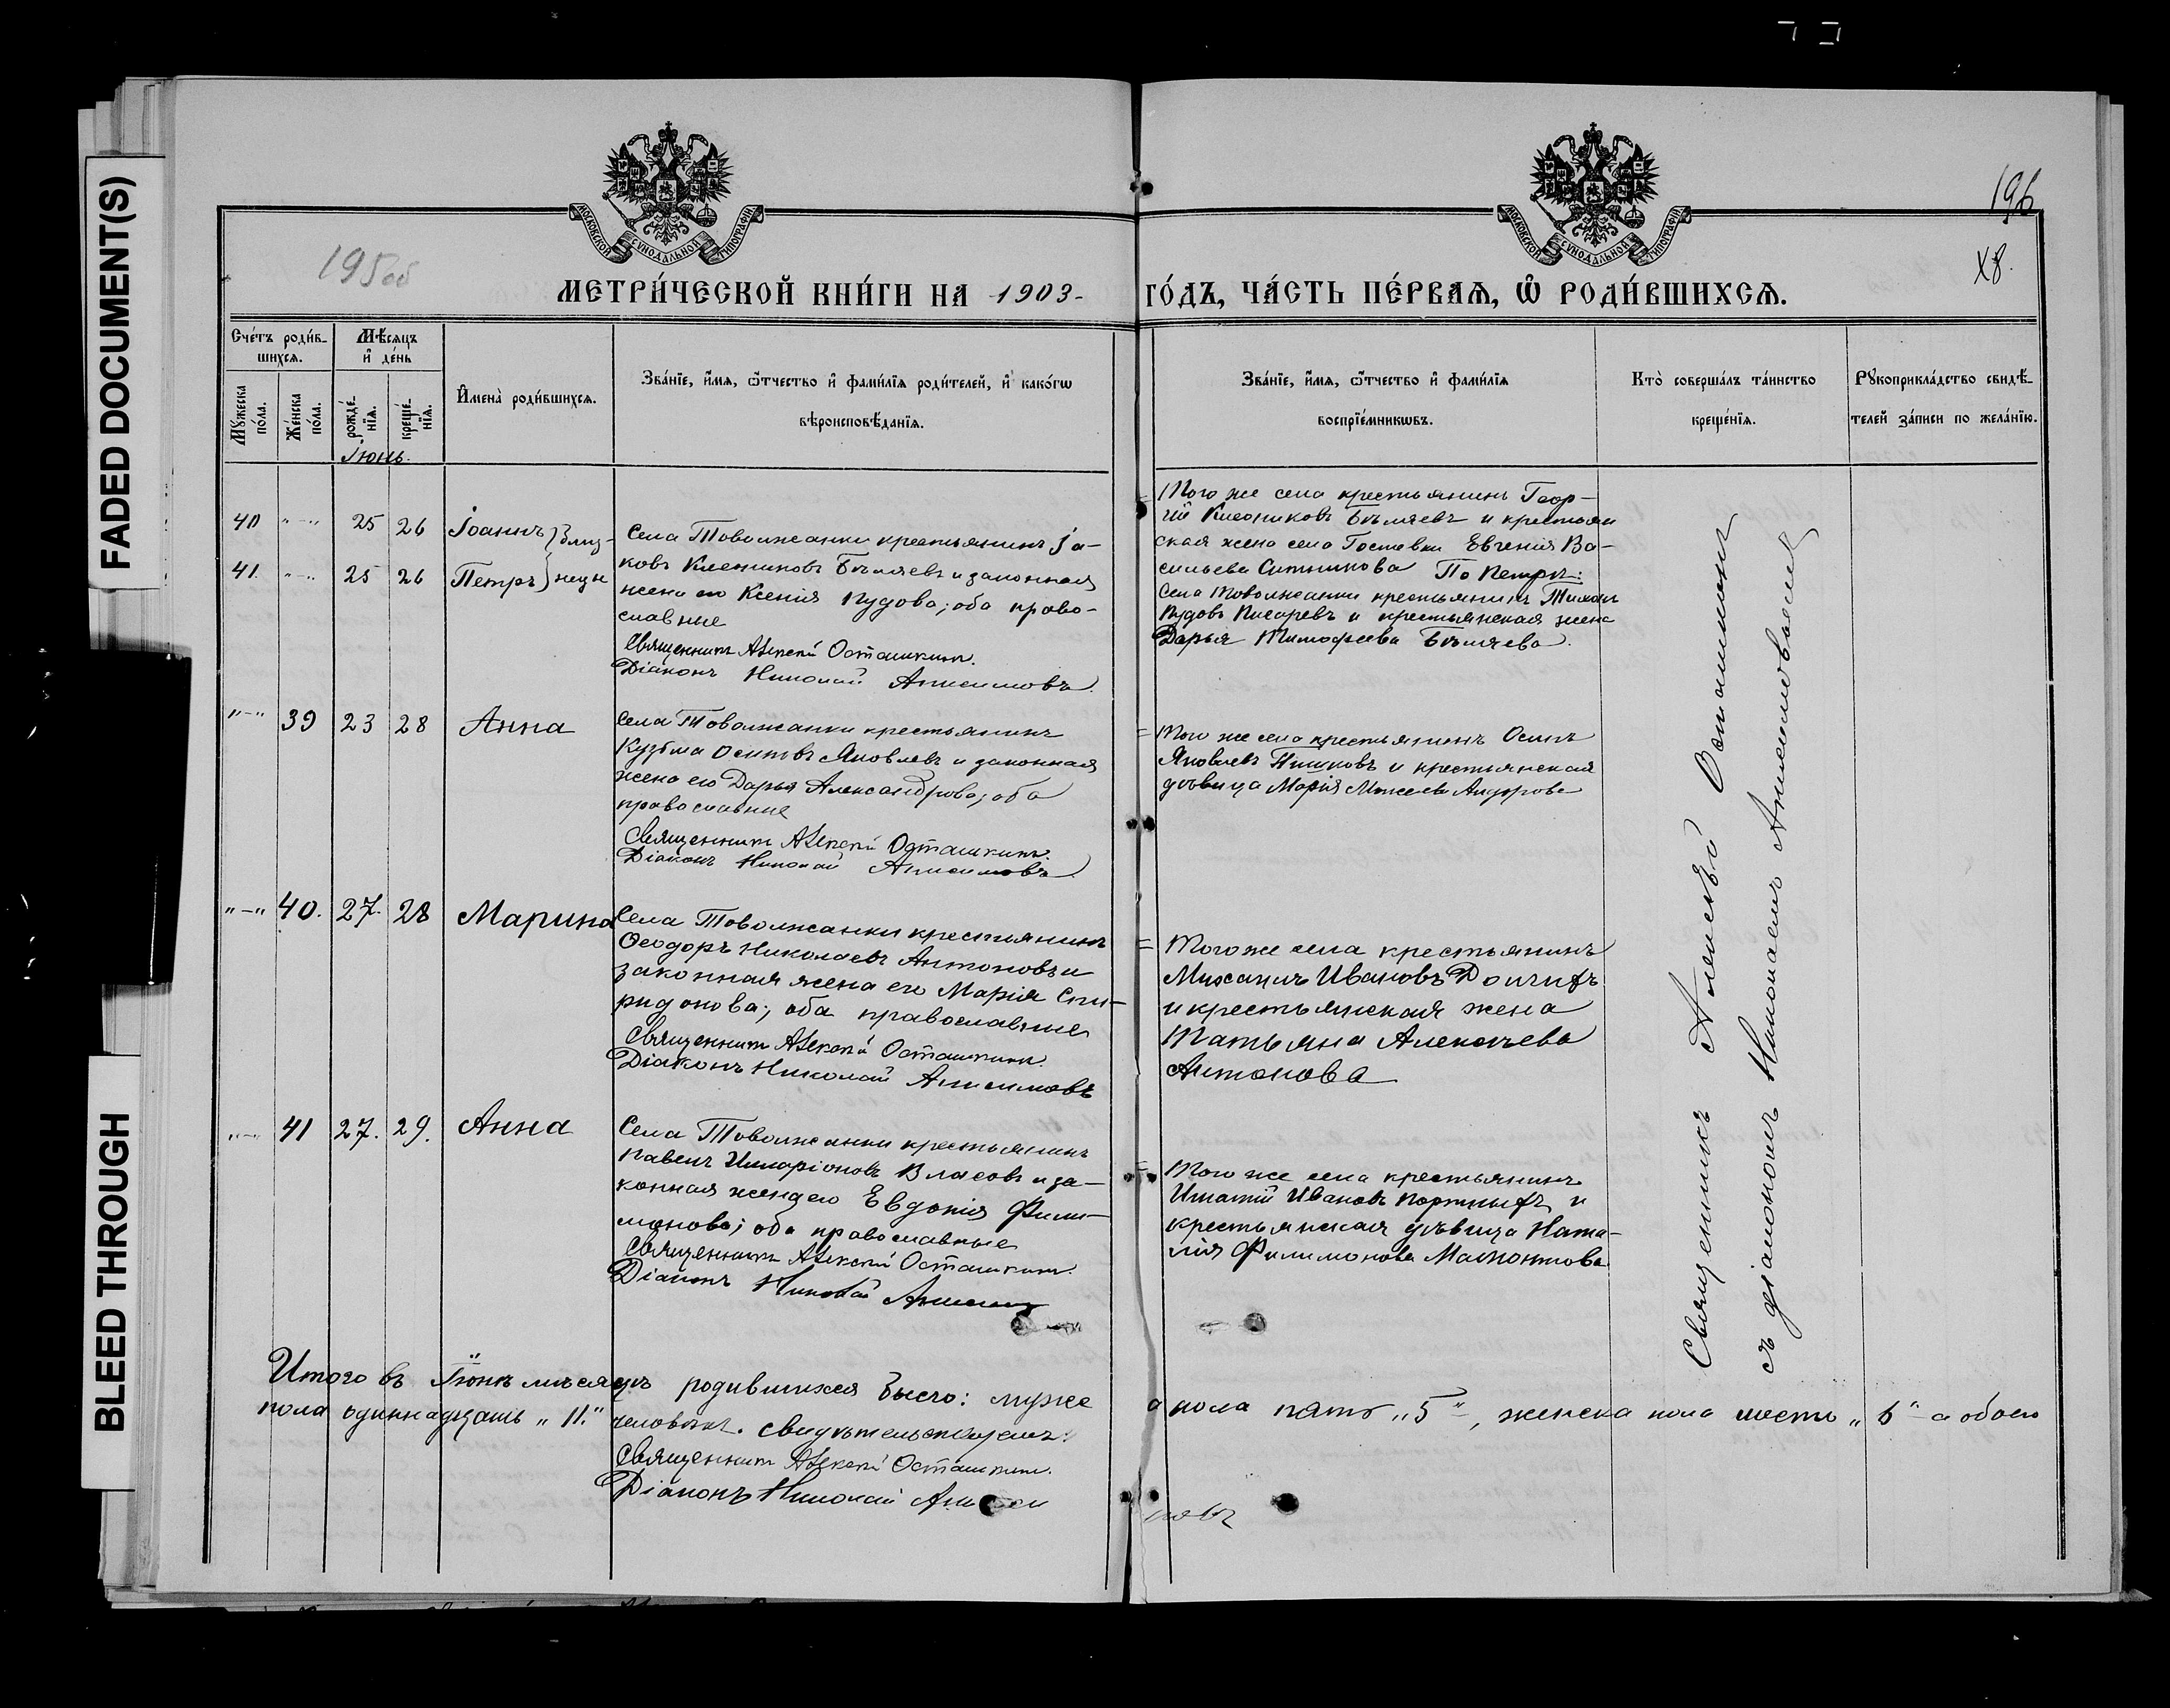 FADED DOCUMENT(S)
BLEED THROUGH
МОСКОВСКОЙ СѴНОДАЛЬНОЙ ТИПОГРАФІИ
МОСКОВСКОЙ СѴНОДАЛЬНОЙ ТИПОГРАФІИ
196
195об
МЕТРИ́ЧЕСКОЙ КНИ́ГИ НА 1903 ГО́ДЪ, ЧА́СТЬ ПЕ́РВАѦ, Ѡ҆ РОДИ́ВШИХСѦ.
Сче́тъ роди́вшихсѧ.
Мꙋ́жеска по́ла.
Же́нска по́ла.
Мѣ́сѧцъ и҆ де́нь
рожде́нїѧ.
креще́нїѧ.
И҆мена̀ роди́вшихсѧ.
Зва́нїе, и҆́мѧ, ѻ҆́тчество и҆ фами́лїѧ роди́телей, и҆ како́гѡ
вѣроисповѣ́данїѧ.
Зва́нїе, и҆́мѧ, ѻ҆́тчество и҆ фами́лїѧ
воспрїе́мникѡвъ.
Кто̀ соверша́лъ та́инство
креще́нїѧ.
Рꙋкоприкла́дство свидѣ́-
телей за́писи по жела́нїю.
Іюнь.
40 "-" 25 26 Іоаннъ } Близ-
41. "-" 25 26 Петръ } нецы
Села Товолжанки крестьянинъ Іа-
ковъ Клеониковъ Бѣляевъ и законная
жена его Ксенія Пудова; оба право-
славные
Священникъ Алексѣй Осташкинъ.
Діаконъ Николай Анисимовъ.
Того же села крестьянинъ Геор-
гій Клеониковъ Бѣляевъ и крестьян
ская жена села Гостевки Евгенія Ва-
сильева Ситникова По Петрѣ:
Села Товолжанки крестьянинъ Тихонъ
Пудовъ Писаревъ и крестьянская жена
Дарья Тимофеева Бѣляева.
"-" 39 23 28 Анна
Села Товолжанки крестьянинъ
Кузьма Осиповъ Яковлевъ и законная
жена его Дарья Александрова; оба
православные
Священникъ Алексѣй Осташкинъ.
Діаконъ Николай Анисимовъ
Того же села крестьянинъ Осипъ
Яковлевъ и крестьянская
дѣвица Марія Моисеева
"-" 40. 27. 28 Марина
Села Товолжанки крестьянинъ
Ѳеодоръ Николаевъ Антоновъ и
законная жена его Марія Спи-
ридонова; оба православные
Священникъ Алексѣй Осташкинъ.
Діаконъ Николай Анисимовъ
Того же села крестьянинъ
Михаилъ Ивановъ Долгихъ
и крестьянская жена
Татьяна Алексѣева
Антонова
"-" 41 27. 29. Анна
Села Товолжанки крестьянинъ
Павелъ Иларіоновъ Власовъ и за-
конная жена его Евдокія Фили-
монова; оба православные
Священникъ Алексѣй Осташкинъ.
Діаконъ Николай Анисимовъ
Того же села крестьянинъ
Игнатій Ивановъ Портныхъ и
крестьянская дѣвица Ната-
лія Филимонова Мамонтова
Священникъ Алексѣй Осташкинъ
съ діакономъ Николаемъ Анисимовымъ
Итого въ Іюнѣ мѣсяцѣ родившихся было: мужска пола пять „5", женска пола шесть „6" а обоего
пола одиннадцать „11." человѣкъ. Свидѣтельствуемъ:
Священникъ Алексѣй Осташкинъ.
Діаконъ Николай Анисимовъ